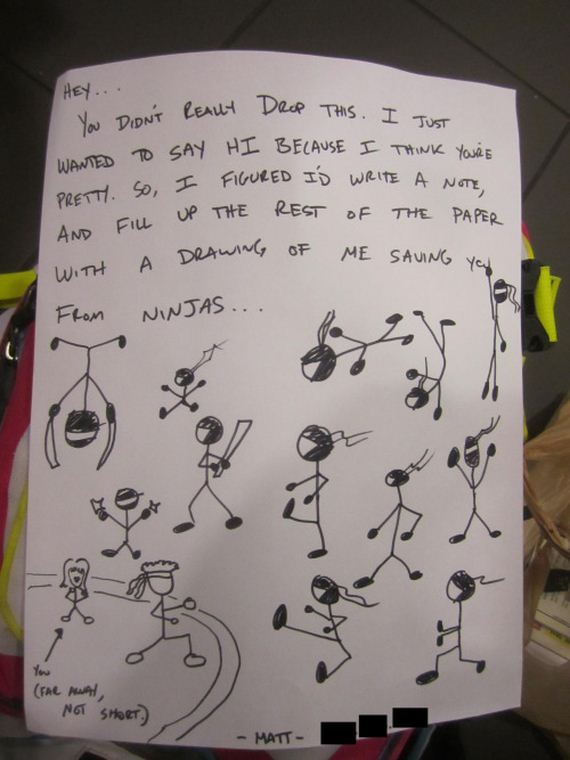 HEY...
YOU DIDN'T REALLY DROP THIS. I JUST
WANTED TO SAY HI BECAUSE I THINK YOU'RE
PRETTY. SO, I FIGURED I'D WRITE A NOTE,
AND FILL UP THE REST OF THE PAPER
WITH A DRAWING OF ME SAVING YOU
FROM NINJAS...
YOU
(FAR AWAY,
NOT SHORT.)
- MATT -